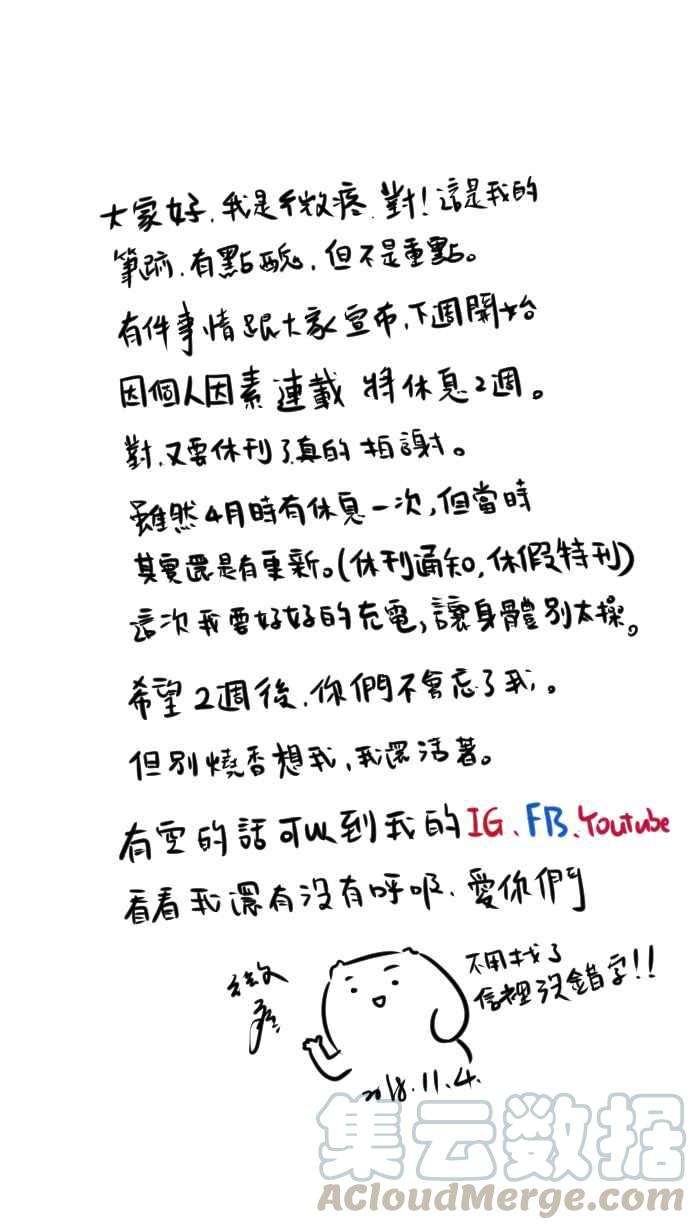 大家好，我是微疼，對！這是我的
筆跡，有點醜，但不是重點。
有件事情跟大家宣布，下週開始
因個人因素連載 將休息2週。
對，又要休刊了真的拍謝。
雖然4月時有休息一次，但當時
其實還是有更新。(休刊通知，休假特刊)
這次我要好好的充電，讓身體別太操。
希望2週後，你們不會忘了我。
但別燒香想我，我還活著。
有空的話可以到我的IG、FB、Youtube
看看我還有沒有呼吸，愛你們
微疼
不用找了
信裡沒錯字!!
2018.11.4.
集云数据
ACloudMerge.com